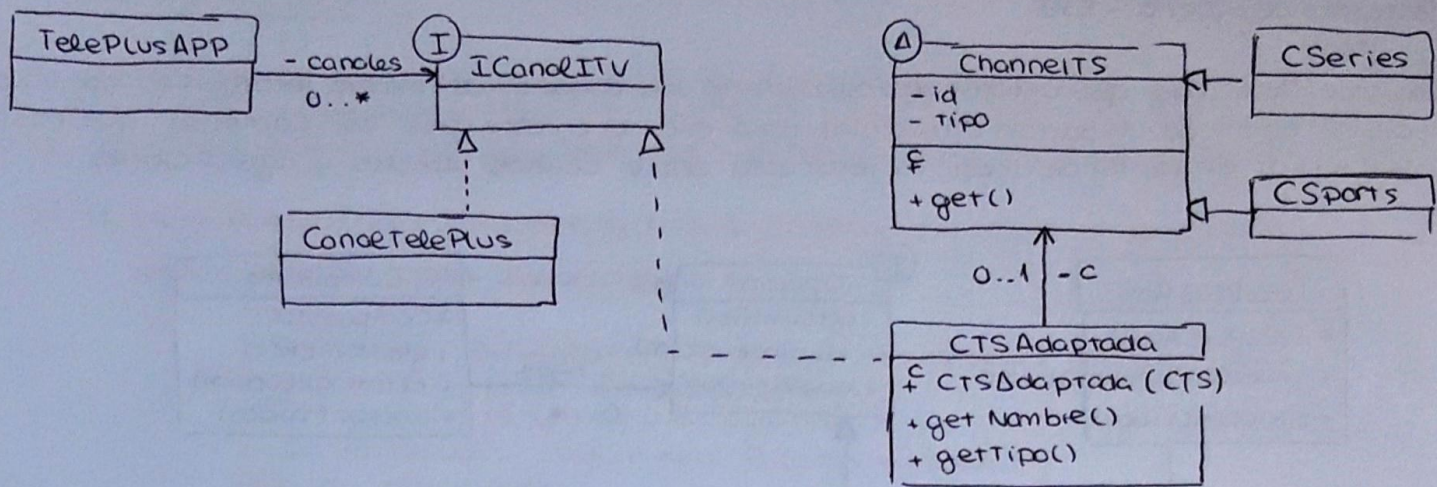 TelePlusAPP
- canales
0..*
I
ICanalITV
CanalTelePlus
A
ChannelTS
- id
- Tipo
+ get()
CSeries
CSports
0..1
- c
CTSAdaptada
+ c CTSAdaptada (CTS)
+ get Nombre()
+ getTipo()